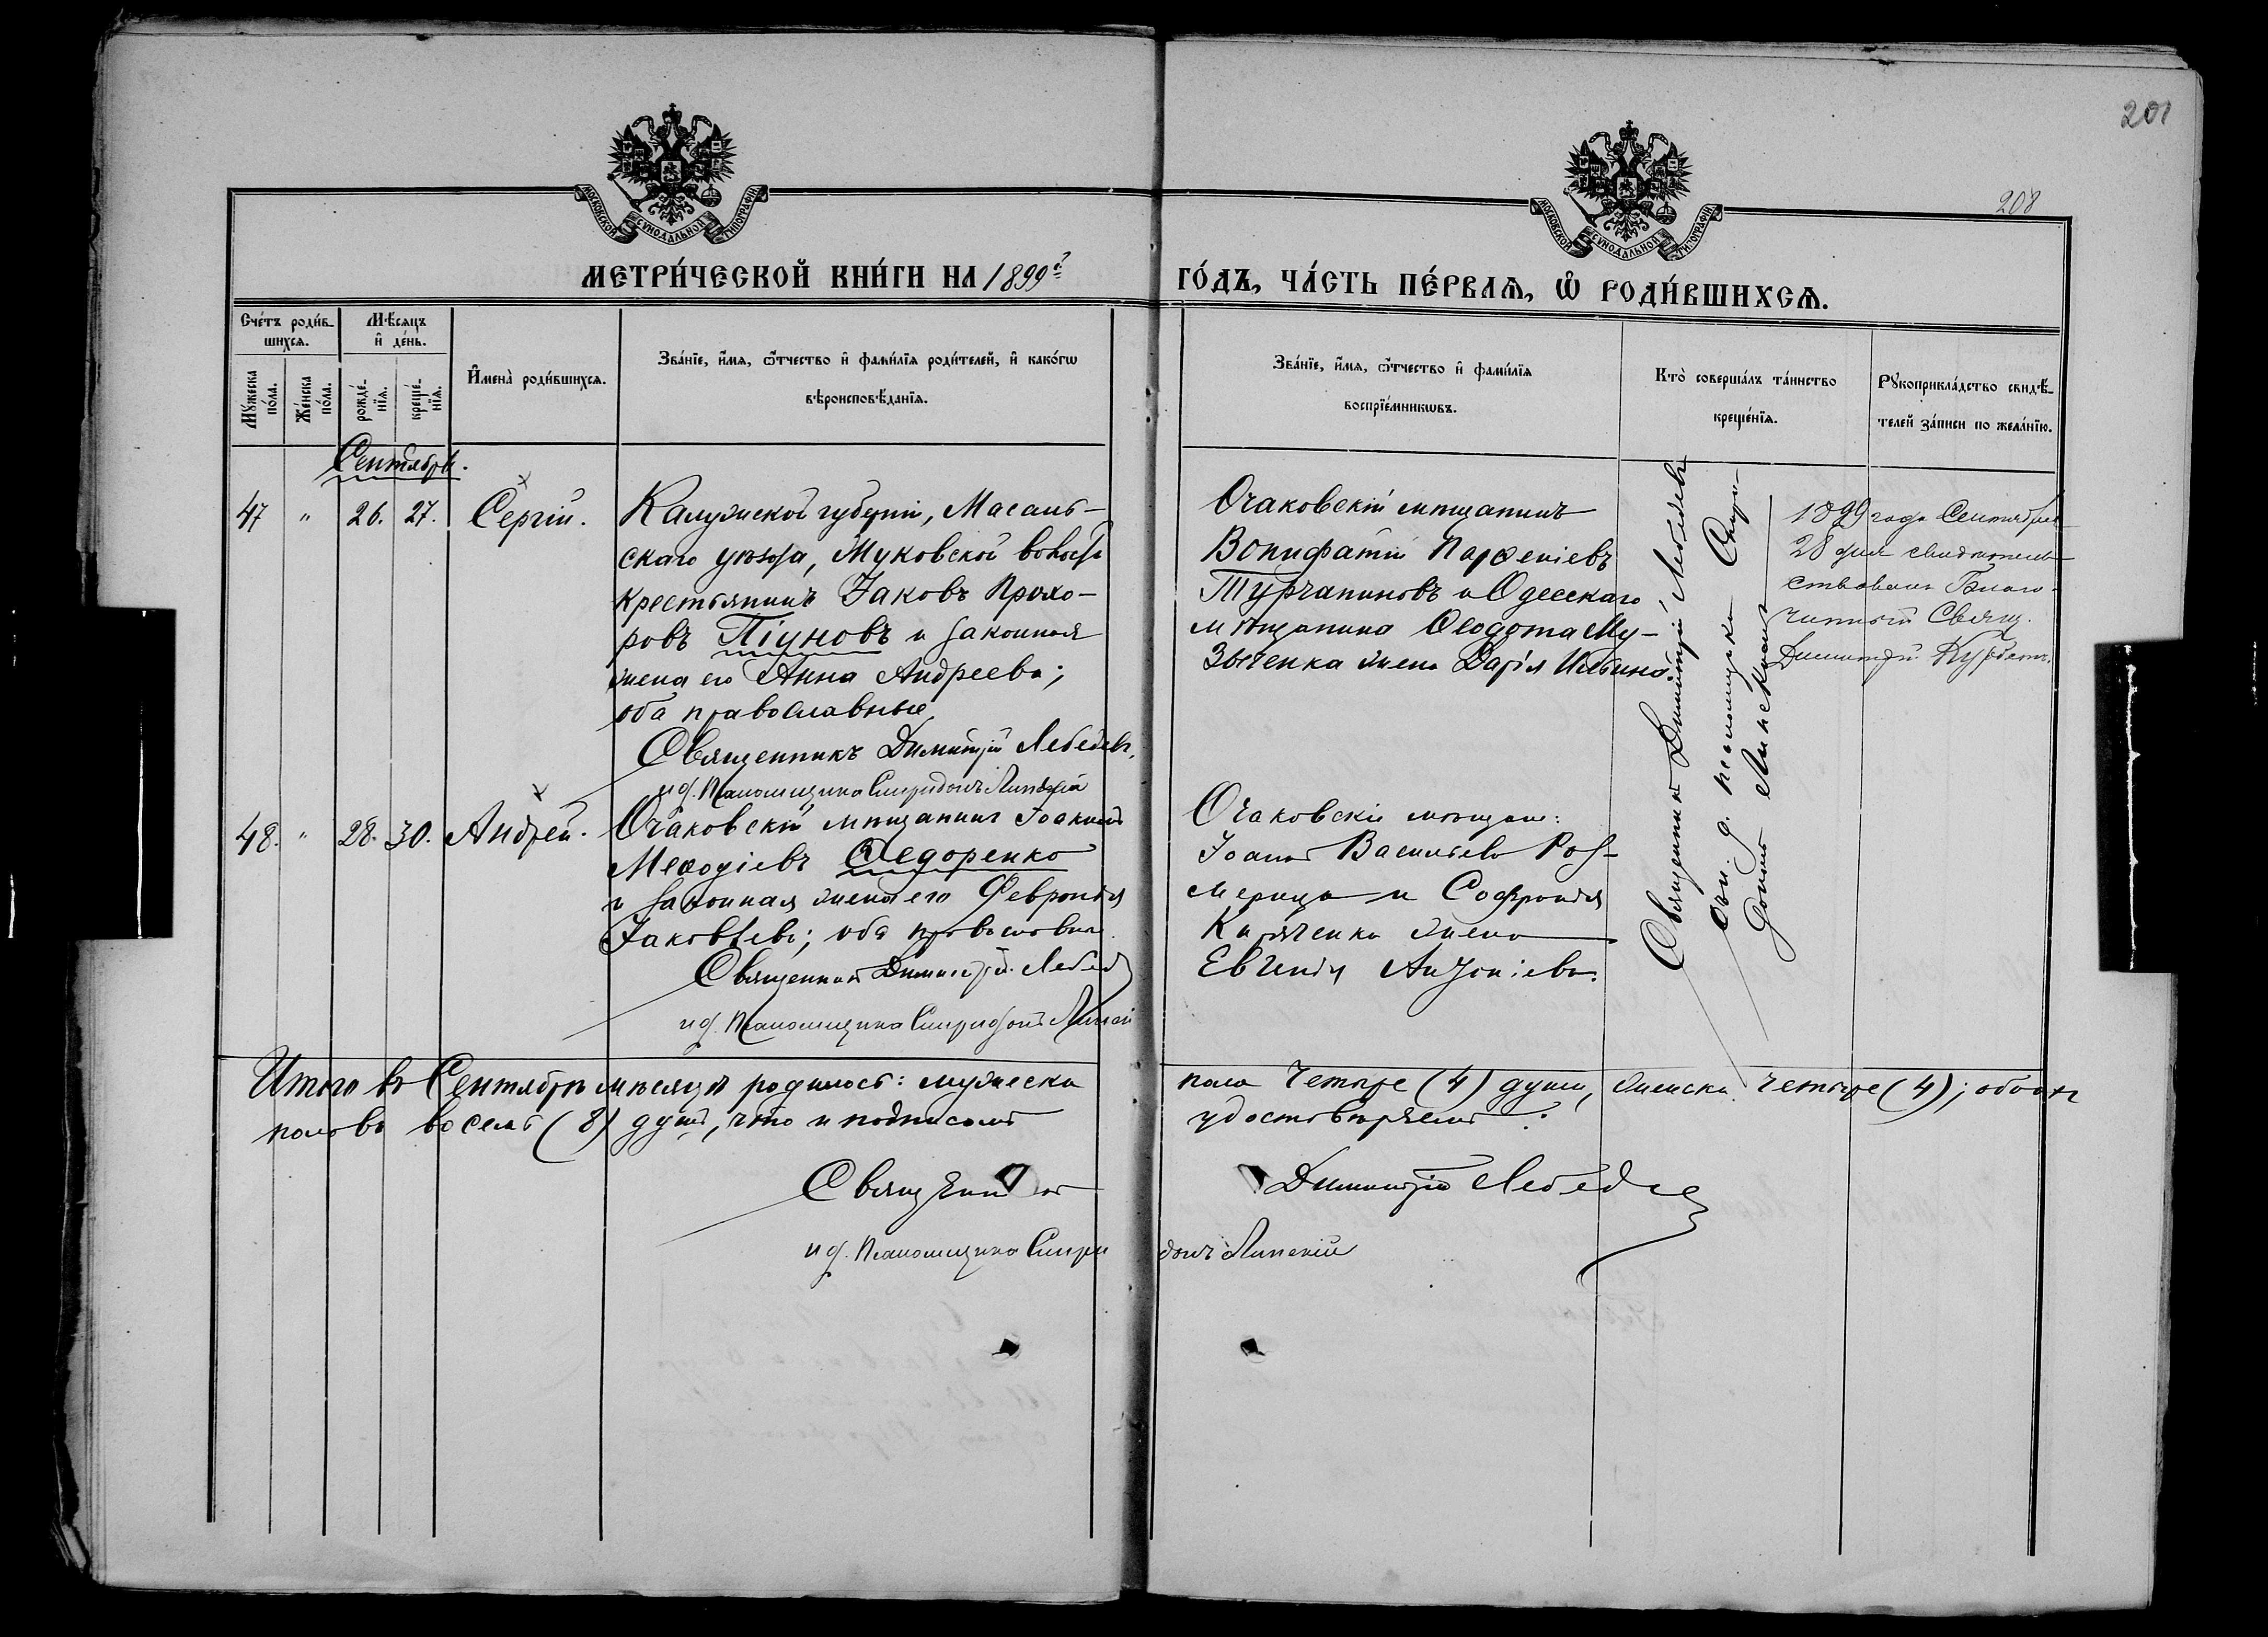 201
208
МОСКОВСКОЙ СУНОДАЛЬНОЙ ТИПОГРАФІИ
МОСКОВСКОЙ СУНОДАЛЬНОЙ ТИПОГРАФІИ
МЕТРИ́ЧЕСКОЙ КНИ́ГИ НА 1899 г.
ГО́ДЪ, ЧА́СТЬ ПЕ́РВАѦ, Ѽ РОДИ́ВШИХСѦ.
Сче́тъ роди́в-
шихсѧ.
Мꙋ́жеска
по́ла.
Же́нска
по́ла.
Мѣ́сѧцъ
и҆ де́нь.
рожде́-
нїѧ.
креще́-
нїѧ.
И҆мена̀ роди́вшихсѧ.
Зва́нїе, и҆́мѧ, ѻ҆́тчество и҆ фами́лїѧ роди́телей, и҆ како́гѡ
вѣроисповѣ́данїѧ.
Зва́нїе, и҆́мѧ, ѻ҆́тчество и҆ фами́лїѧ
воспрїе́мникѡвъ.
Кто̀ соверша́лъ та́инство
креще́нїѧ.
Рꙋкоприкла́дство свидѣ́-
телей за́писи по жела́нїю.
Сентябрь.
47 " 26. 27. Сергій.
Калужской губерніи, Масаль-
скаго уѣзда, Муковской волости
крестьянинъ Іаковъ Прохо-
ровъ Піуновъ и законная
жена его Анна Андреева;
оба православные
Священникъ Димитрій Лебедевъ.
и д. Псаломщика Спиридонъ Липскій
Очаковскій мѣщанинъ
Вонифатій Парѳеніевъ
Турчаниновъ и Одесскаго
мѣщанина Ѳеодота Му-
зыченка жена Дарія Ильина.
Священникъ Димитрій Лебедевъ
и д. псаломщика Спири-
донъ Липскій
1899 года Сентября
28 дня свидѣтель-
ствовалъ Благо-
чинный Свящ.
Димитрій
48. " 28. 30. Андрей.
Очаковскій мѣщанинъ Іоакимъ
Меѳодіевъ Ѳедоренко
и законная жена его Февронія
Іаковлева; оба православные
Священникъ Димитрій Лебедевъ
и д. Псаломщика Спиридонъ Липскій
Очаковскіе мѣщане:
Іоаннъ Васильевъ Роз-
мерица и Софронія
жена
Евгенія Антоніева.
Итого въ Сентябрѣ мѣсяцѣ родилось: мужеска
пола четыре (4) души, женска четыре (4); обоихъ
половъ восемь (8) душъ, что и подписомъ
удостовѣряемъ:
Священникъ Димитрій Лебедевъ
и д. Псаломщика Спиридонъ Липскій